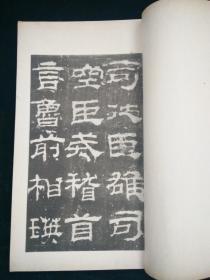 司徒臣雄司
空臣戒稽首
言魯前相瑛